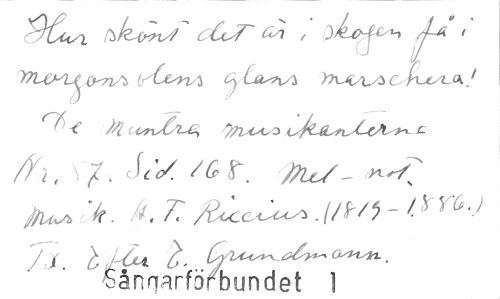 Hur skönt det är i skogen få i
morgonsolens glans marschera!
De muntra musikanterna
Nr. 57. Sid. 168. Mel-not.
Musik. A. T. Riccius. (1819-1886.)
Tx. Efter E. Grundmann.
Sångarförbundet 1